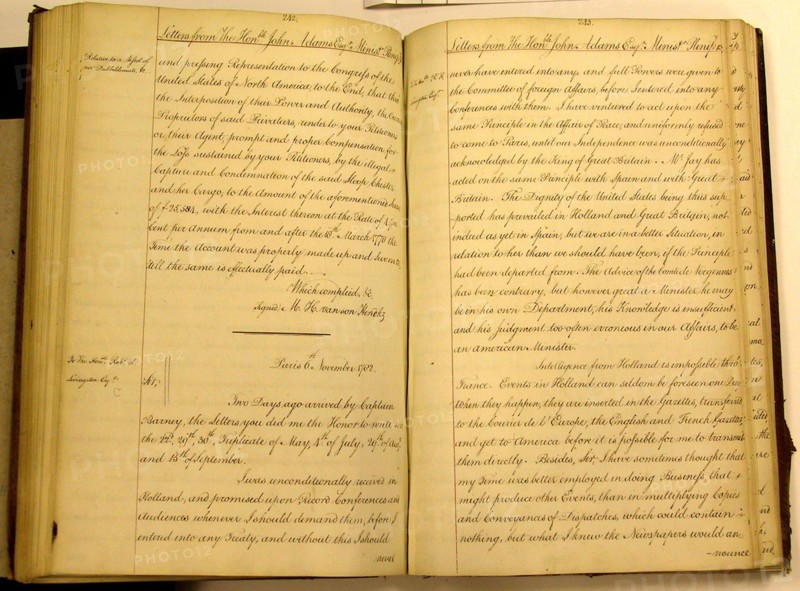 242.
Letters from The Hon.ble John Adams Esq.r Minis.r Plenip.
and pressing Representation to the Congress of the
United States of North America; to the End, that thro'
the Interposition of their Power and Authority, the
Proprietors of said Privateers, render to your Petitioners
or their Agent, prompt and proper Compensation, for
the Loss sustained by your Petitioners, by the illegal
Capture and Condemnation of the said Sloop Chester
and her Cargo, to the Amount of the aforementioned
of f 25,584, with the Interest thereon at the Rate of
Cent per Annum, from and after the 18th March 1778 the
Time the Account was properly made up and
till the same is effectually paid.
Which complied &c
Signed M. H. van son
Paris 6th November 1782.
To The Hon.
Livingston Esq.r
Sir,
Two Days ago arrived by Captain
Barney, the Letters you did me the Honor to write
the 22d, 29th, 30th, Duplicate of May, 4th of July, 29th of
and 15th of September.
I was unconditionally received in
Holland, and promised upon Record Conferences and
Audiences whenever I should demand them, before I
entered into any Treaty, and without this I should
never
243.
Letters from The Hon.ble John Adams Esq.r Minis.r Plenip.
never have entered into any and full Powers were given to
the Committee of foreign Affairs, before I entered into any
Conferences with them. I have ventured to act upon the
same Principle in the Affair of Peace, and uniformly refused
to come to Paris, until our Independence was unconditionally
acknowledged by the King of Great Britain. Mr Jay has
acted on the same Principle with Spain and with Great
Britain. The Dignity of the United States being thus sup
ported has prevailed in Holland and Great Britain, not
indeed as yet in Spain, but we are in a better Situation, in
relation to her than we should have been, if the Principle
had been departed from. The Advice of the Comte de Vergennes
has been contrary, but however great a Minister he may
be in his own Department, his Knowledge is insufficient
and his judgment too often erroneous in our Affairs, to be
an american Minister.
Intelligence from Holland is impossible thro'
France. Events in Holland can seldom be foreseen one Day
When they happen, they are inserted in the Gazettes, transferred
to the Courier de l'Europe, the English and French Gazettes
and get to America before it is possible for me to transmit
them directly. Besides, Sir, I have sometimes thought that
my time was better employed in doing Business, that
might produce other Events, than in multiplying Copies
and Conveyances of Dispatches, which could contain
nothing, but what I knew the Newspapers would an-
nounce